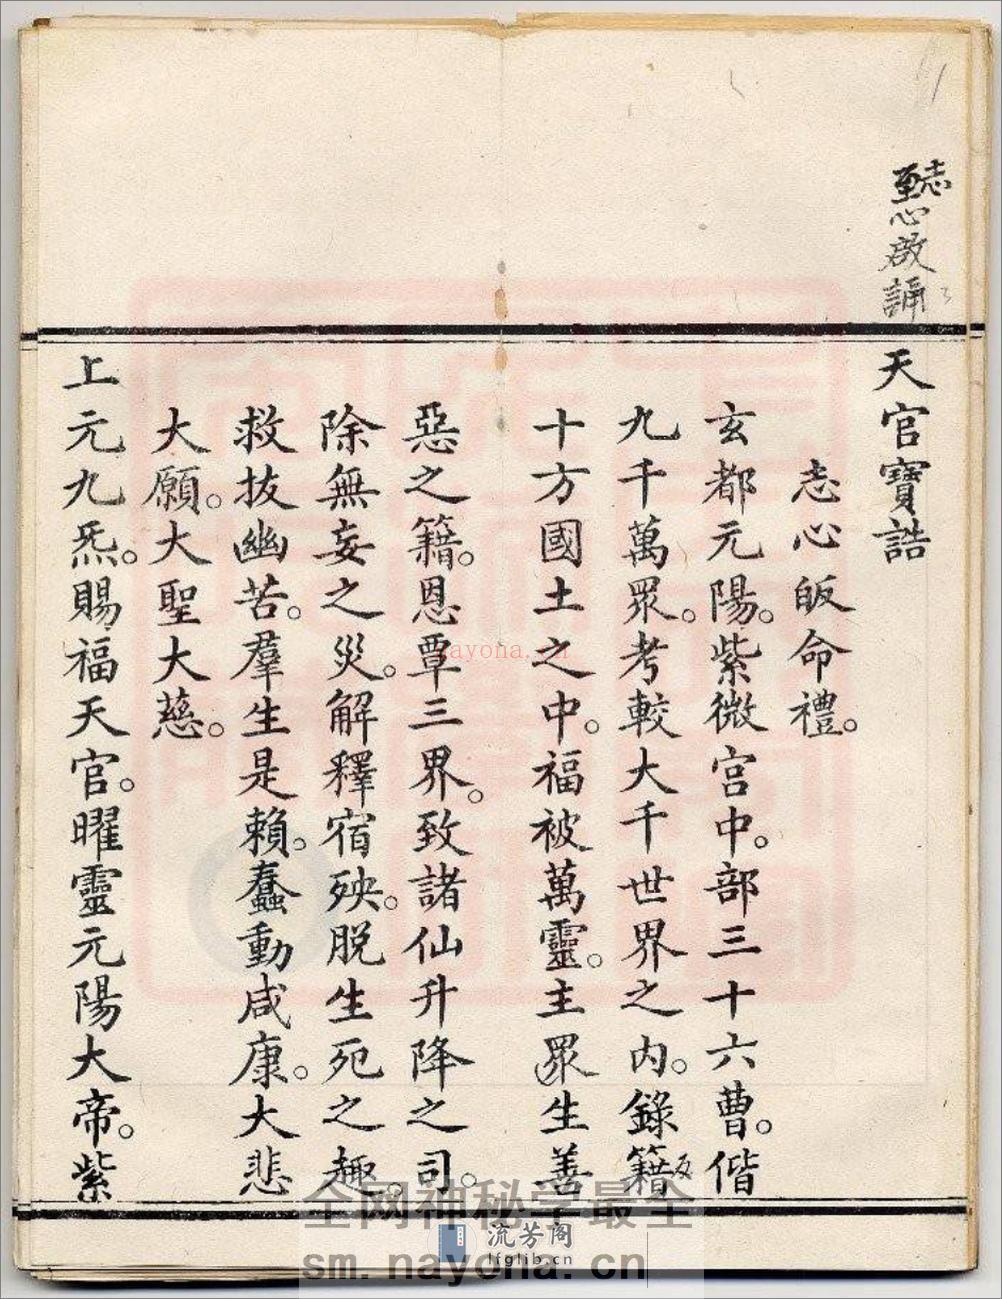 志心啟誦
天官寶誥
志心皈命禮。
玄都元陽。紫微宮中。部三十六曹。偕
九千萬眾。考較大千世界之內。錄籍
十方國土之中。福被萬靈。主眾生善
惡之籍。恩覃三界。致諸仙升降之司。
除無妄之災。解釋宿殃。脱生死之趣。
救拔幽苦。羣生是賴。蠢動咸康。大悲
大願。大聖大慈。
上元九炁。賜福天官。曜靈元陽大帝。紫
nayona.cn
全网神秘学最全
流芳阁
lfglib.cn
sm.nayona.cn